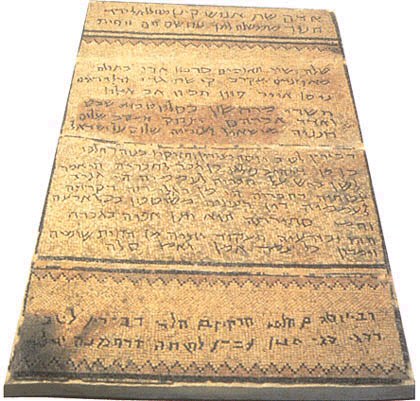 אדם שת אנוש קינן מהללאל ירד
חנוך מתושלח למך נוח שם חם ויפת
טלה שור תאומים סרטן ארי בתולה
מאוזנים עקרב קשת גדי ודלי דגים
ניסן אייר סיון תמוז אב אילול
תשרי מרחשון כסליו טבית שבט
ואדר אברהם יצחק יעקב שלום
חנניה מישאיל ועזריה שלום על ישראל
דכירין לטב יוסה ועירון וחזיקיו בנוה דחלפי
כל מן דגרם פלגו בן גבר לחבריה הי אמר
לשן ביש על חבריה לעממיה הי גניב
צבותיה דחבריה הי מן דגלי רזה דקרתה
לעממיה דין דעינוה משוטטן בכל ארעה
וחמי סתירתה הוא יתן אפוה בגברה
ההו ובזרעיה ויעקור יתיה מן תחות שומיה
וימרון כל עמה אמן ואמן סלה
רבי יוסה בן חלפי חזקיו בן חלפי דכירין לטב
דסגי סגי אנון עבדו לשמה דרחמנה שלום